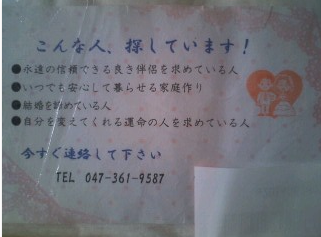 こんな人、探しています！
●永遠の信頼できる良き伴侶を求めている人
●いつでも安心して暮らせる家庭作り
●結婚を諦めている人
●自分を変えてくれる運命の人を求めている人
今すぐ連絡して下さい
TEL 047-361-9587